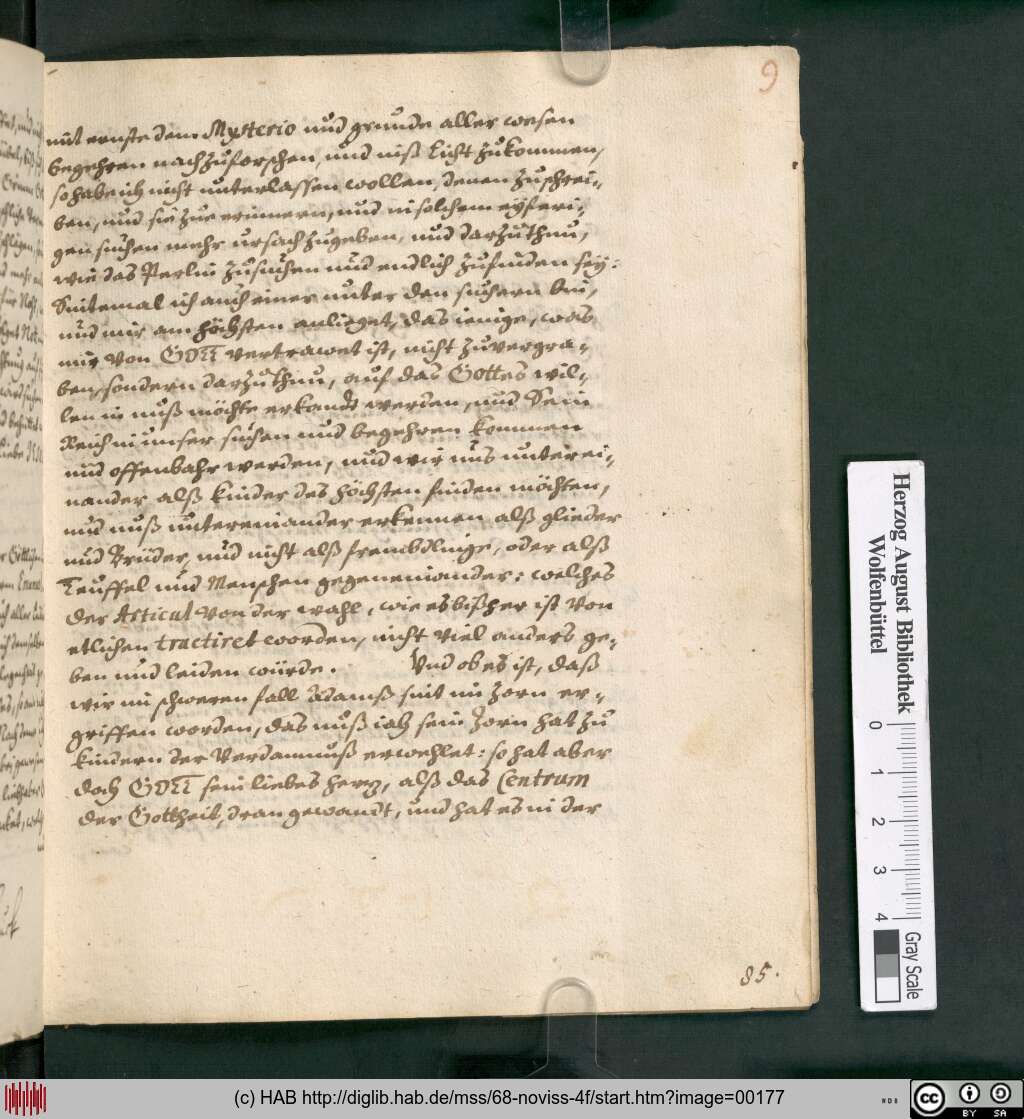 9
mit ernste dem Mysterio und grunde aller wesen
begehren nachzuforschen, und inß Licht zukommen,
so habe ich nicht unterlassen wollen, denen zuschrei-
ben, und sie zue erinnern, und in solchem eyferi-
gen suchen mehr ursach zugeben, und darzuthun,
wie das Perlin zusuchen und endlich zufinden sey:
Sintemal ich auch einer unter den suchern bin,
und mir am höchsten anlieget, das ienige, was
mir von GOTT vertrawet ist, nicht zuvergra-
ben, sondern darzuthun, auf das Gottes wil-
len in unß möchte erkandt werden, und Sein
Reich in unser suchen und begehren kommen
und offenbahr werden, und wir uns unterei-
nander alß kinder des höchsten finden möchten,
und unß untereinander erkennen alß glieder
und Brüder, und nicht alß frembdlinge, oder alß
Teuffel und Menschen gegeneinander: welches
der Articul von der wahl, wie es bißher ist von
etlichen tractiret worden, nicht viel anders ge-
ben und leiden würde. Und ob es ist, daß
wir im schweren fall Adamß seit im Zorn er-
griffen worden, das unß iah sein Zorn hat zu
kindern der Verdamnuß erwehlet: so hat aber
doch GOTT sein liebes hertz, alß das Centrum
der Gottheit, dran gewandt, und hat es in der
85.
Herzog August Bibliothek
Wolfenbüttel
0 1 2 3 4
Gray Scale
(c) HAB http://diglib.hab.de/mss/68-noviss-4f/start.htm?image=00177
cc BY SA